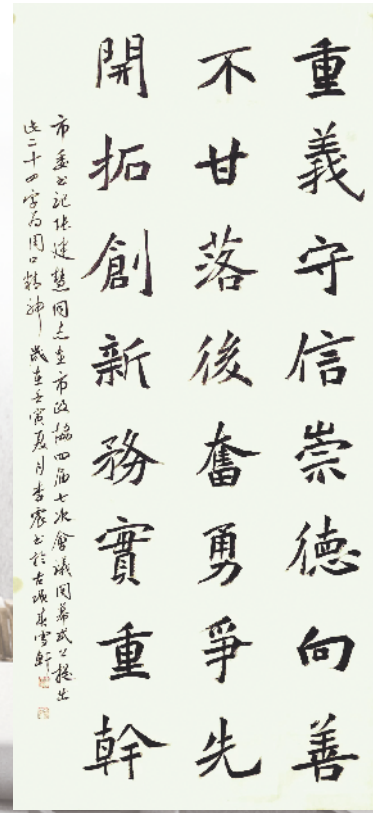 重義守信崇德向善
不甘落後奮勇爭先
開拓創新務實重幹
市委書記張建慧同志在市政協四屆七次會議閉幕式上提出
這二十四字為周口精神 歲在壬寅夏月李震書於古項春雪軒